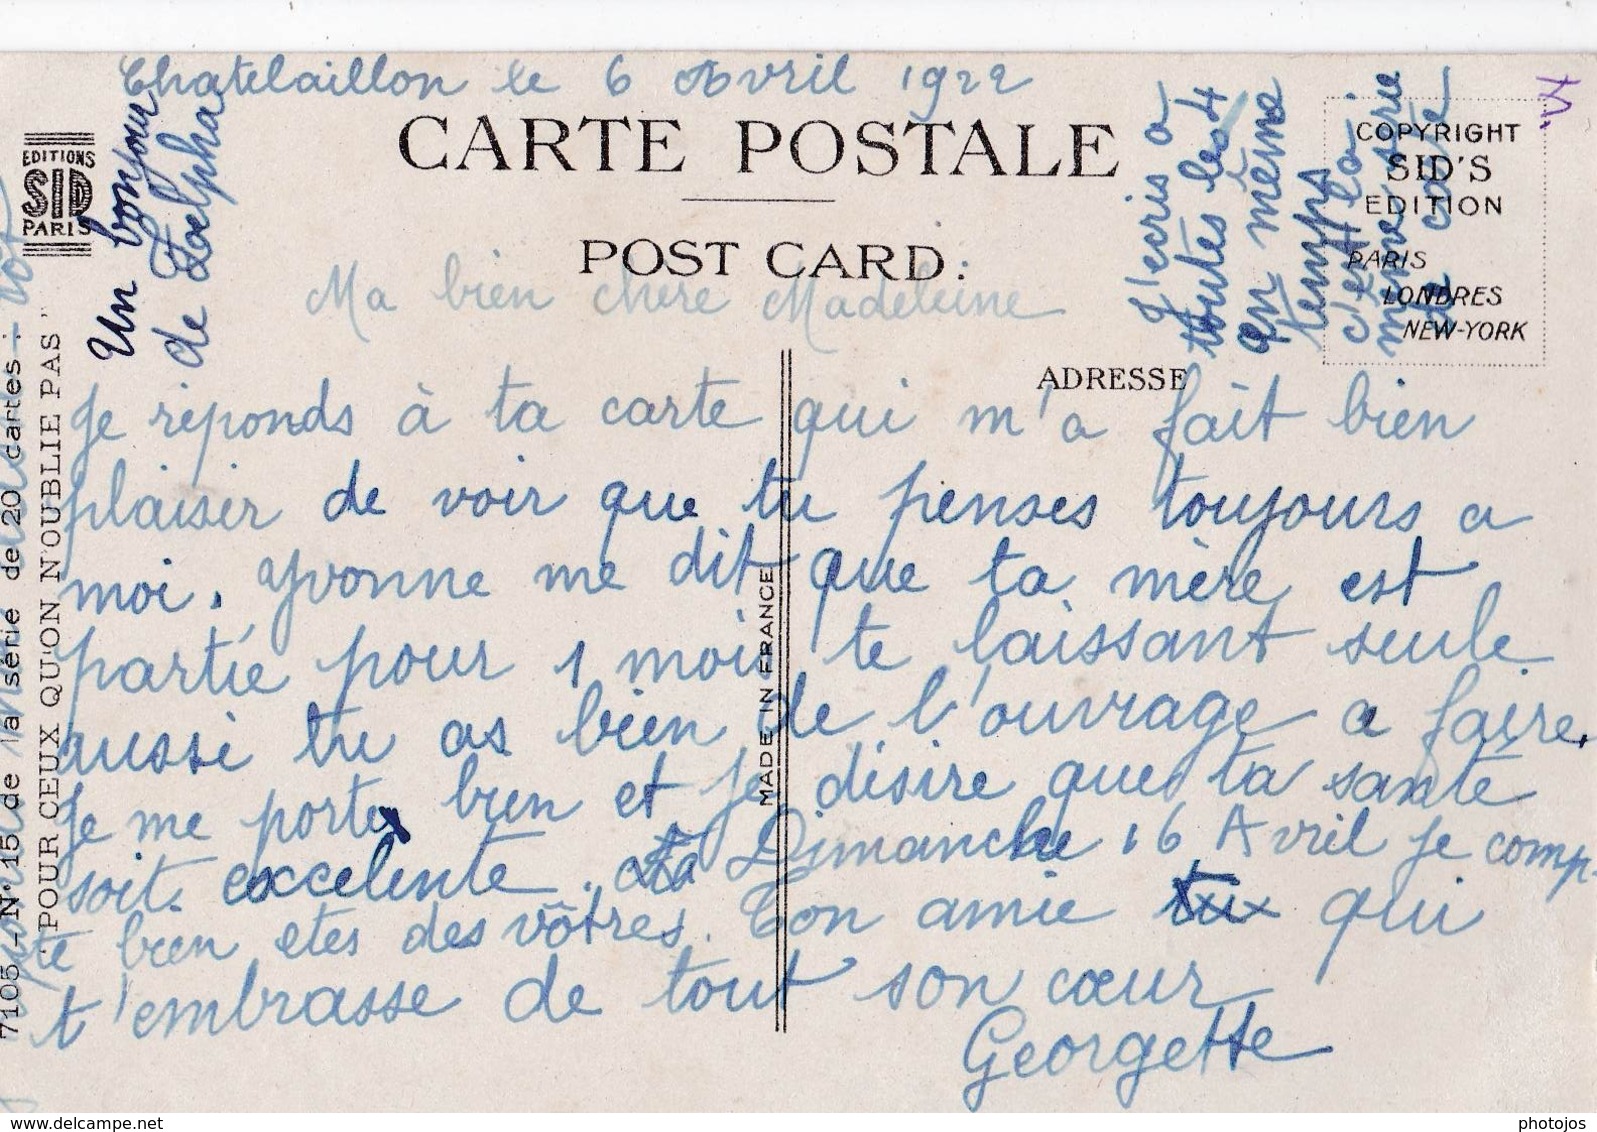 Chatelaillon le 6 Avril 1922
CARTE POSTALE
POST CARD.
EDITIONS
SID
PARIS
Un bonjour
de Delpha
J'ecris a
toutes les 4
en même
temps
c'est la
même série
de carte
M.
COPYRIGHT
SID'S
EDITION
PARIS
LONDRES
NEW-YORK
ADRESSE
Ma bien chere Madeleine
Je réponds à ta carte qui m'a fait bien
plaisir de voir que tu penses toujours a
moi. Yvonne me dit que ta mère est
partie pour 1 mois te laissant seule
aussi tu as bien de l'ouvrage a faire.
Je me porte bien et je désire que ta santé
soit excelente. Dimanche 16 Avril je comp-
pte bien etes des vôtres. Ton amie tu qui
t'embrasse de tout son cœur
Georgette
MADE IN FRANCE
7105 - N° 15 de la série de 20 cartes:
"POUR CEUX QU'ON N'OUBLIE PAS"
photojos